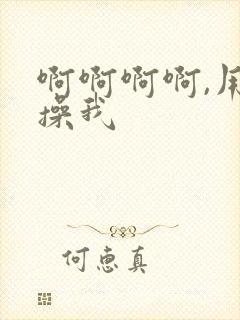 啊啊啊啊,用
操我
何惠真